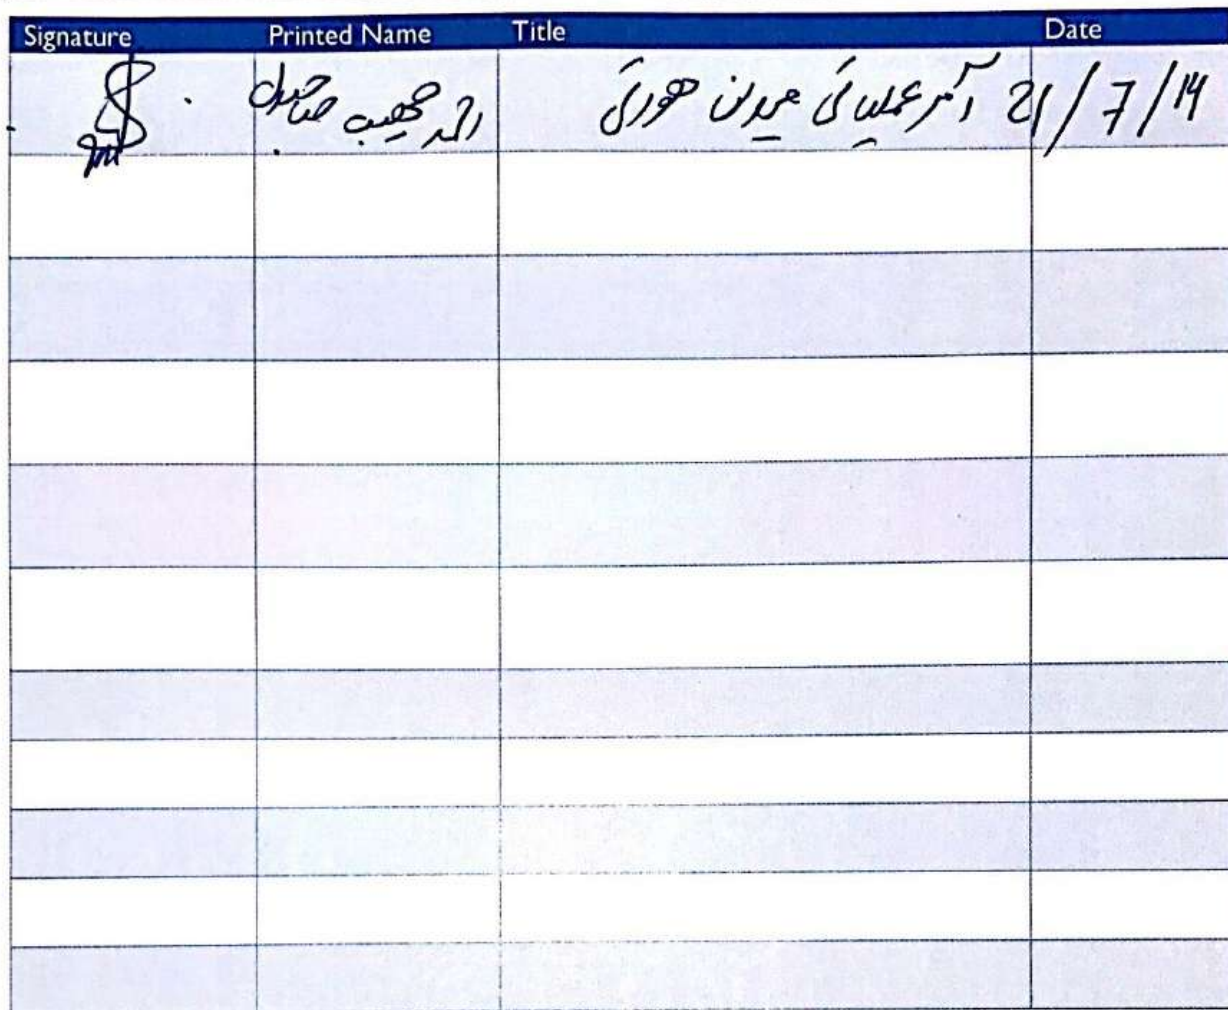 Signature Printed Name Title Date
احمد مجیب آمر عملیاتی میدان هوائی 21/7/14